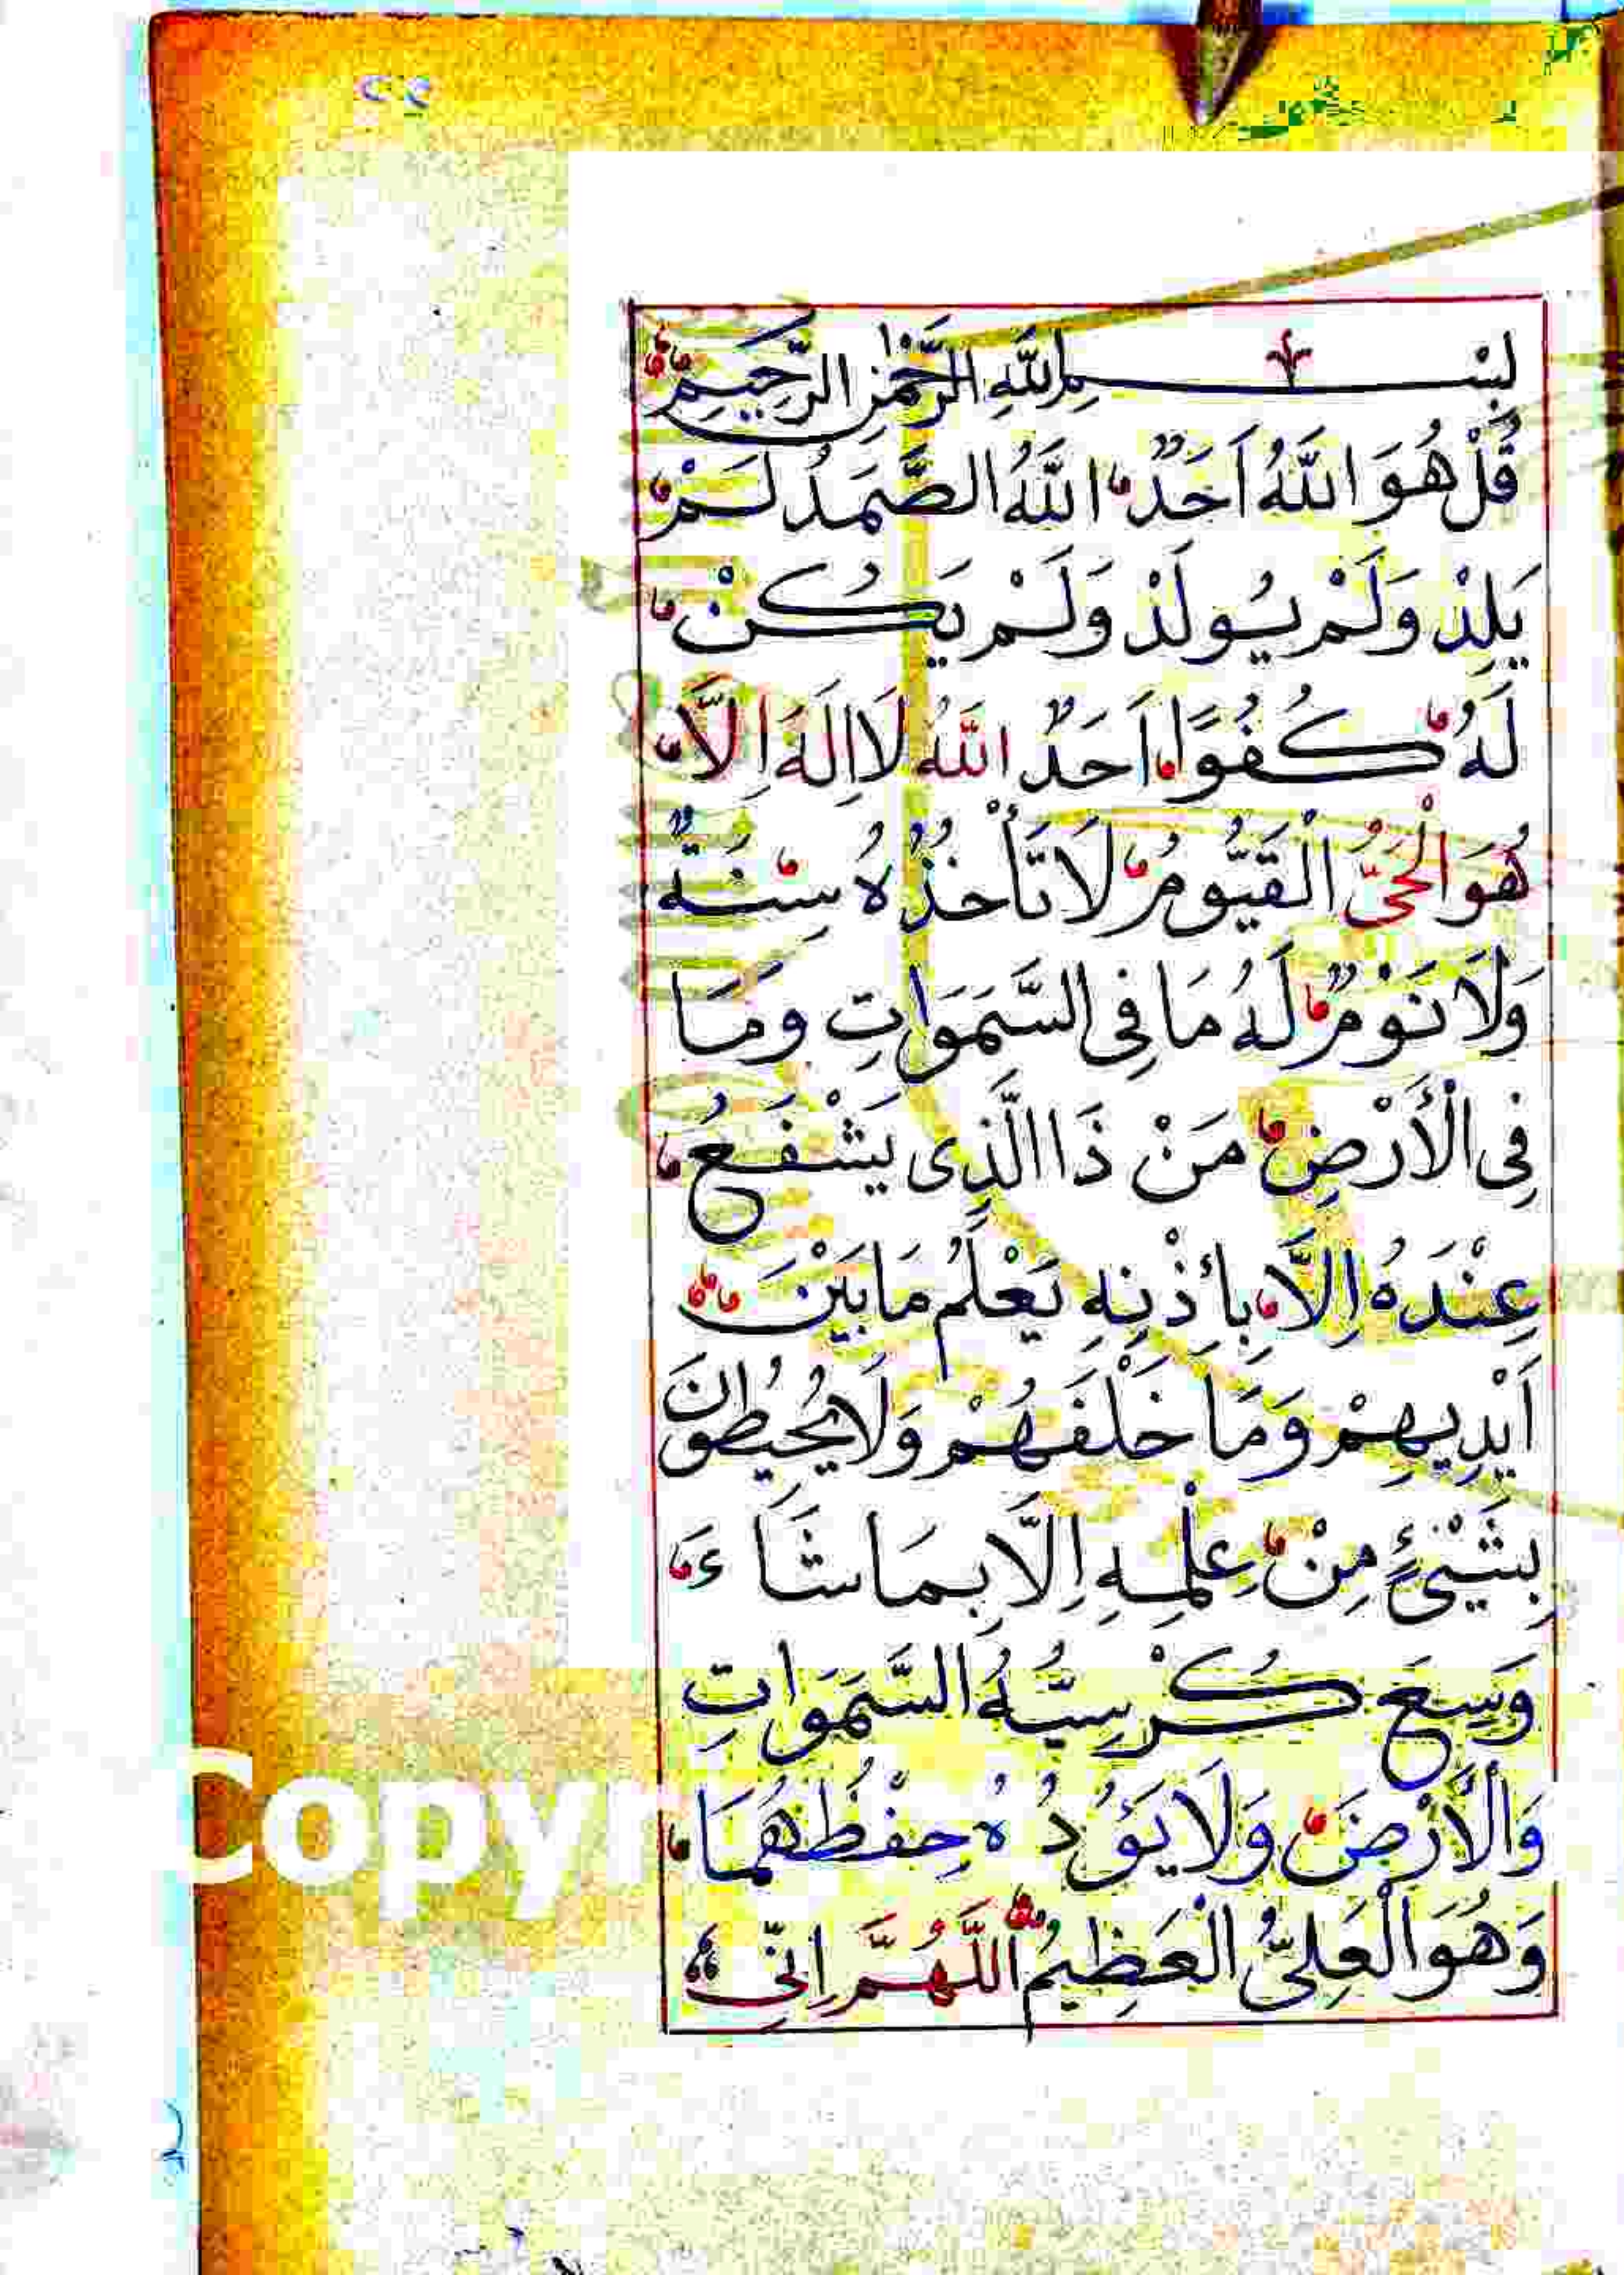 بِسْمِ اللّٰهِ الرَّحْمٰنِ الرَّحِيمِ
قُلْ هُوَ اللّٰهُ اَحَدٌ اللّٰهُ الصَّمَدُ لَمْ
يَلِدْ وَلَمْ يُولَدْ وَلَمْ يَكُنْ
لَهُ كُفُوًا اَحَدٌ اللّٰهُ لَا اِلٰهَ اِلَّا
هُوَ الْحَىُّ الْقَيُّومُ لَا تَأْخُذُهُ سِنَةٌ
وَلَا نَوْمٌ لَهُ مَا فِى السَّمَوَاتِ وَمَا
فِى الْأَرْضِ مَنْ ذَا الَّذِى يَشْفَعُ
عِنْدَهُ اِلَّا بِاِذْنِهِ يَعْلَمُ مَا بَيْنَ
اَيْدِيهِمْ وَمَا خَلْفَهُمْ وَلَا يُحِيطُونَ
بِشَيْئٍ مِنْ عِلْمِهِ اِلَّا بِمَا شَاءَ
وَسِعَ كُرْسِيُّهُ السَّمَوَاتِ
وَالْأَرْضَ وَلَا يَؤُدُهُ حِفْظُهُمَا
وَهُوَ الْعَلِىُّ الْعَظِيمُ اَللّٰهُمَّ اِنِّى
Copyr